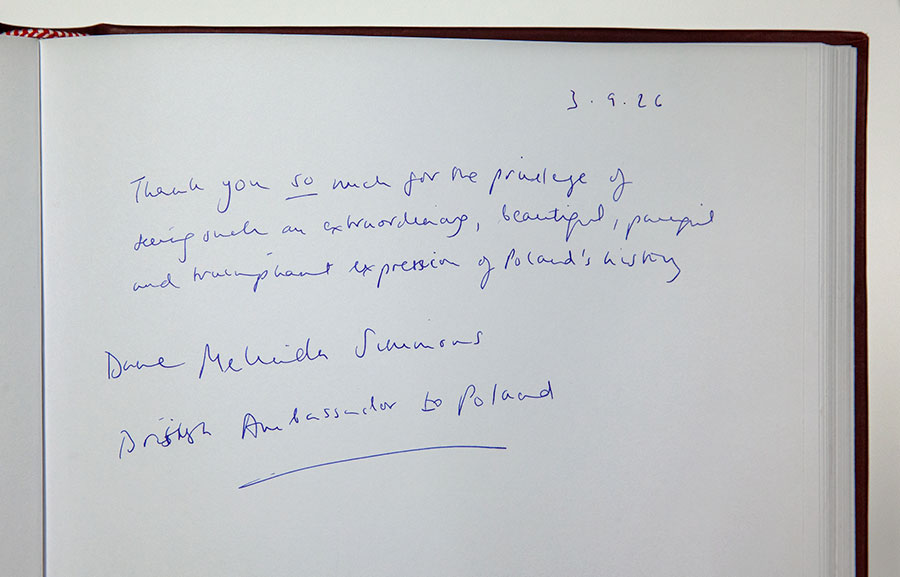 3.9.26
Thank you so much for the privilege of
seeing such an extraordinary, beautiful, painful
and triumphant expression of Poland's history
Dame Melinda Simmons
British Ambassador to Poland